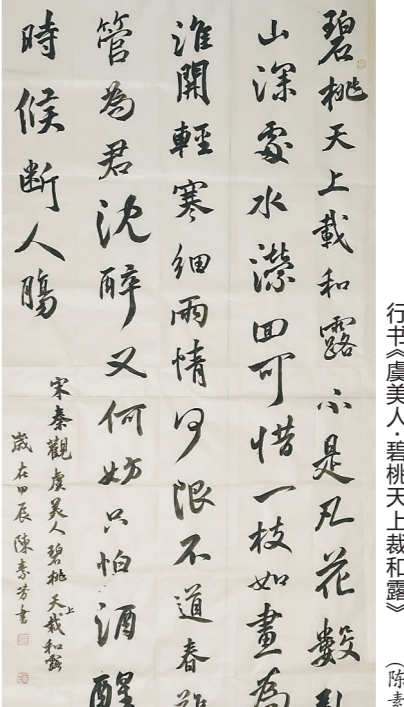 碧桃天上載和露不是凡花數亂
山深處水瀠回可惜一枝如畫為
誰開輕寒細雨情何限不道春難
管為君沈醉又何妨只怕酒醒
時候斷人腸
宋秦觀虞美人碧桃天上栽和露
歲在甲辰陳素芳書
行书《虞美人·碧桃天上裁和露》
（陈素